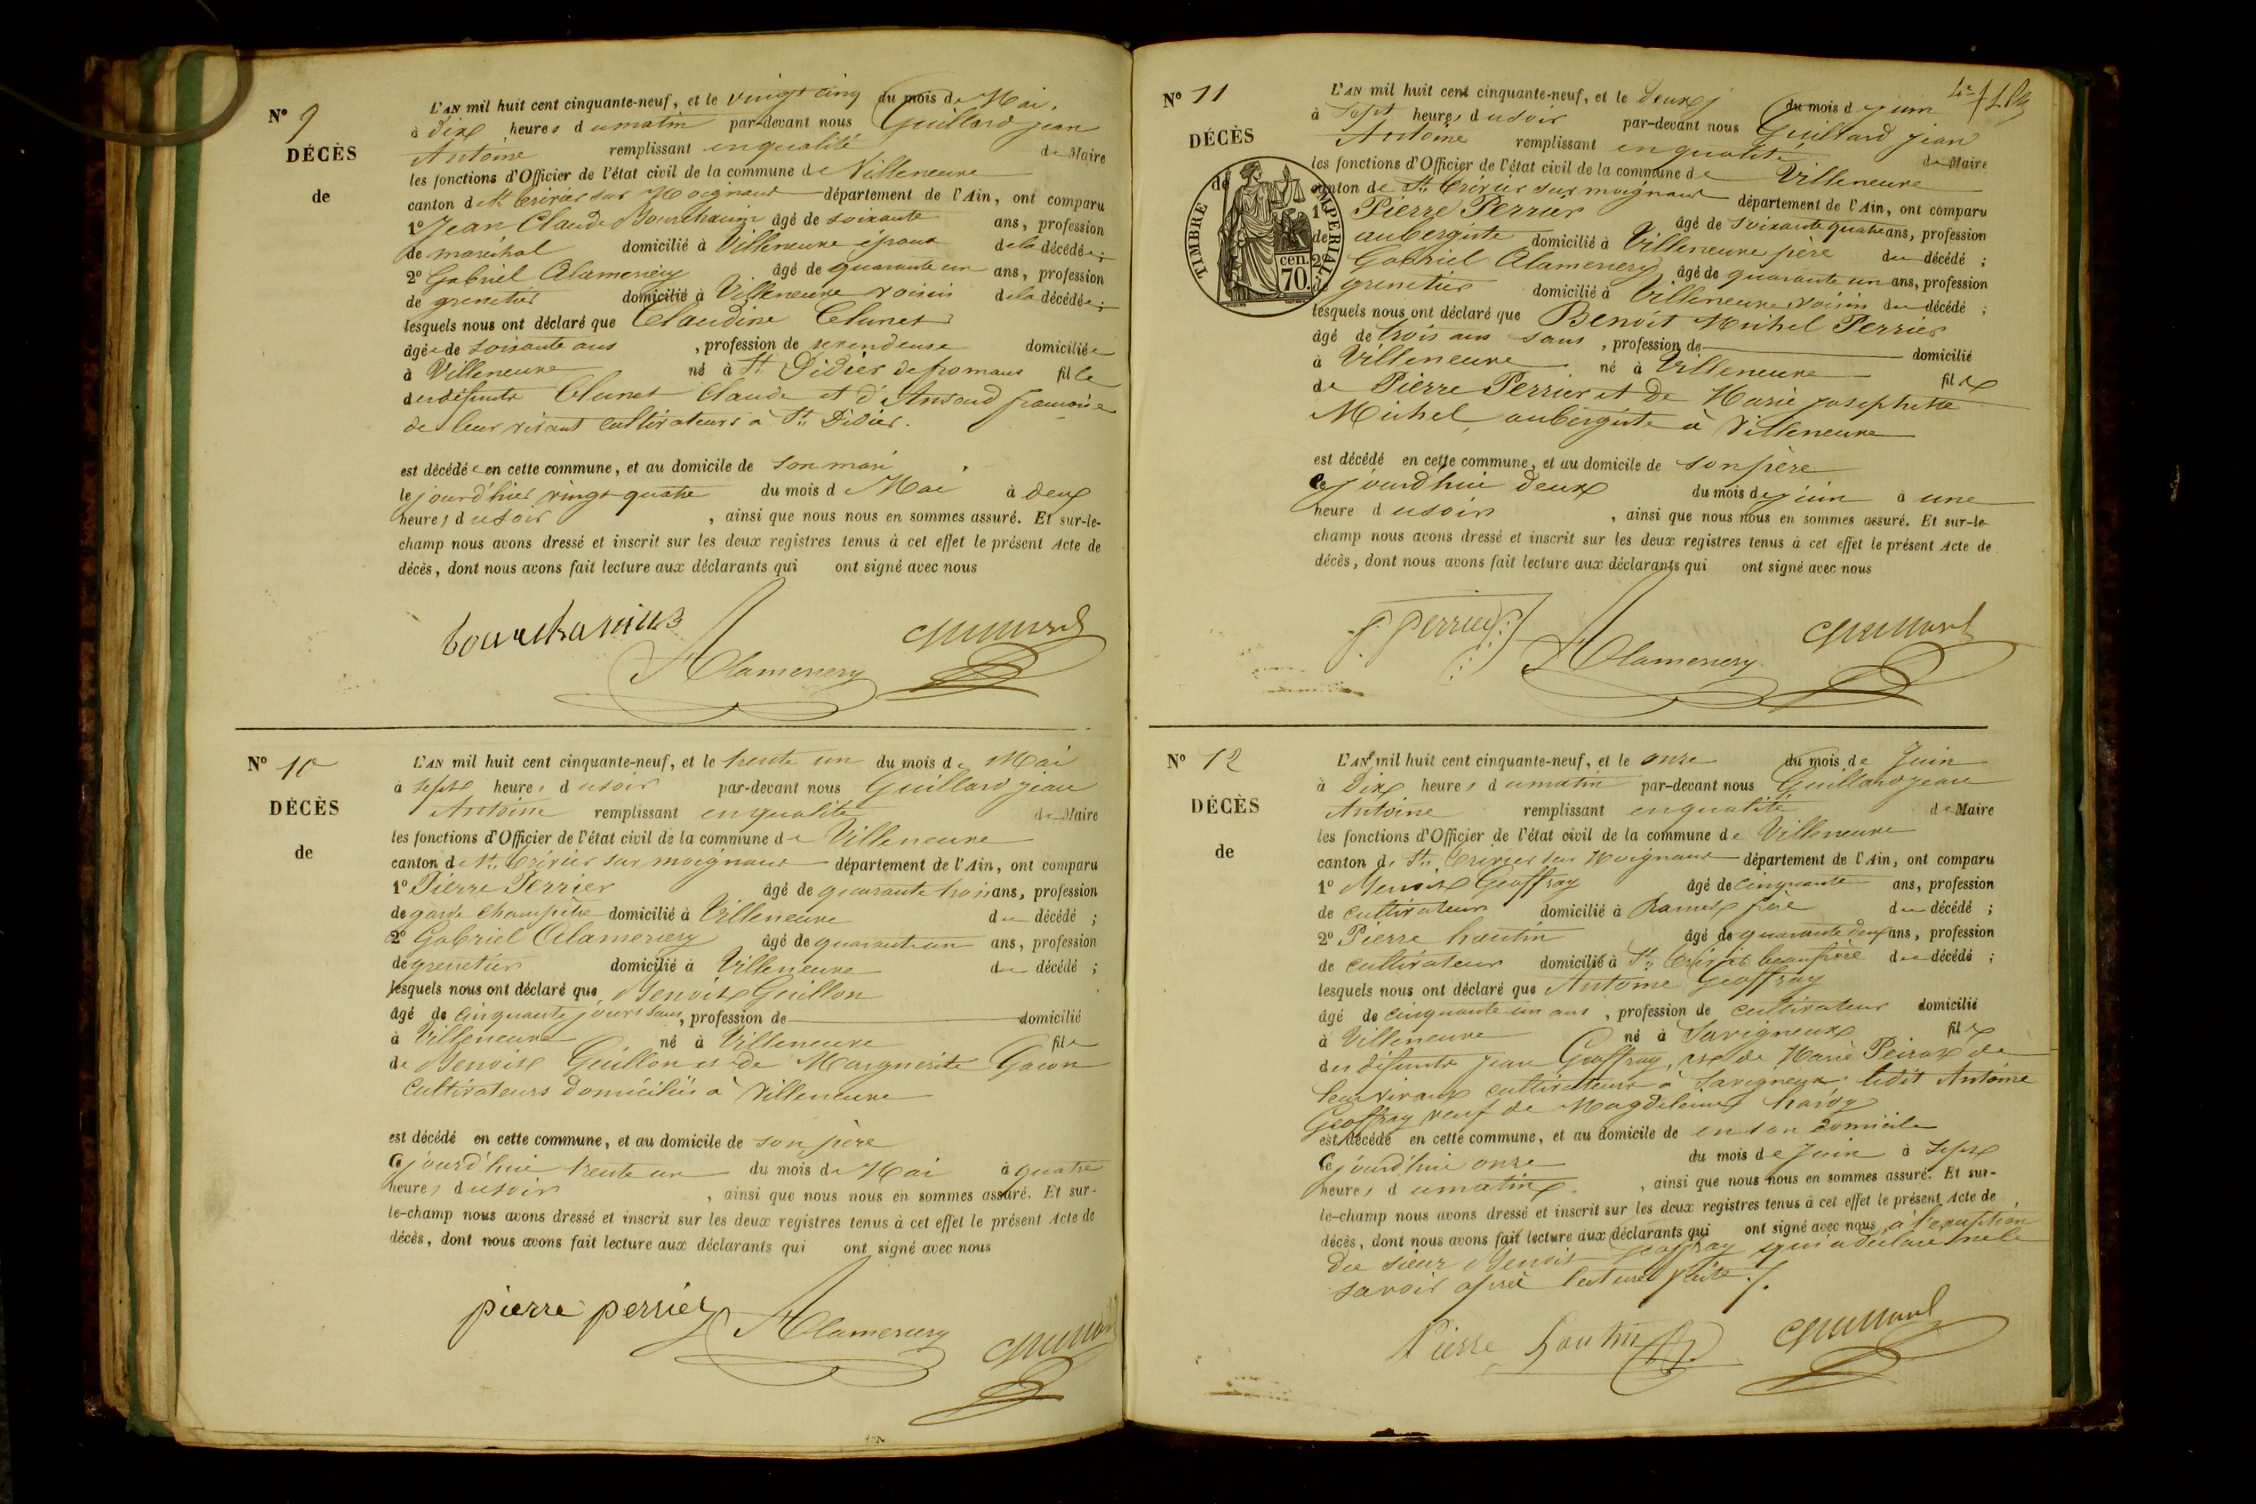 N° 9
DÉCÈS
de
L'AN mil huit cent cinquante-neuf, et le vingt cinq du mois de Mai.
à dix heures du matin par-devant nous Guillard jean
Antoine remplissant en qualité de Maire
les fonctions d'Officier de l'état civil de la commune de Villeneuve
canton de St. Trivier sur Moignans département de l'Ain, ont comparu
1° Jean Claude âgé de soixante ans, profession
de maréchal domicilié à Villeneuve époux de la décédée ;
2° Gabriel Alamercery âgé de quarante un ans, profession
de grenetier domicilié à Villeneuve voisin de la décédée ;
lesquels nous ont déclaré que Claudine Clunet
âgée de soixante ans , profession de revendeuse domiciliée
à Villeneuve né à St. Didier de fromans fille
des défunts Clunet Claude et d'Ansoud françoise
de leur vivant cultivateurs à St. Didier.
est décédée en cette commune, et au domicile de son mari
le jourd'hier vingt quatre du mois de Mai à deux
heures du soir , ainsi que nous nous en sommes assuré. Et sur-le-
champ nous avons dressé et inscrit sur les deux registres tenus à cet effet le présent Acte de
décès, dont nous avons fait lecture aux déclarants qui ont signé avec nous
Alamercery Guillard
N° 10
DÉCÈS
de
L'AN mil huit cent cinquante-neuf, et le trente un du mois de Mai
à sept heures du soir par-devant nous Guillard jean
Antoine remplissant en qualité de Maire
les fonctions d'Officier de l'état civil de la commune de Villeneuve
canton de St. Trivier sur moignans département de l'Ain, ont comparu
1° Pierre Perrier âgé de quarante trois ans, profession
de garde champêtre domicilié à Villeneuve du décédé ;
2° Gabriel Alamercery âgé de quarante un ans, profession
de grenetier domicilié à Villeneuve du décédé ;
lesquels nous ont déclaré que Benoit Guillon
âgé de cinquante jours sans, profession de domicilié
à Villeneuve né à Villeneuve fils
de Benoit Guillon et de Marguerite Gacon
cultivateurs domiciliés à Villeneuve
est décédé en cette commune, et au domicile de son père
Cejourd'hui trente un du mois de Mai à quatre
heures du soir , ainsi que nous nous en sommes assuré. Et sur-
le-champ nous avons dressé et inscrit sur les deux registres tenus à cet effet le présent Acte de
décès, dont nous avons fait lecture aux déclarants qui ont signé avec nous
pierre perrier Alamercery Guillard
N° 11
DÉCÈS
de
TIMBRE IMPERIAL
70. cen.
L'AN mil huit cent cinquante-neuf, et le deux du mois de juin
à sept heures du soir par-devant nous Guillard jean
Antoine remplissant en qualité de Maire
les fonctions d'Officier de l'état civil de la commune de Villeneuve
canton de St. Trivier sur moignans département de l'Ain, ont comparu
1° Pierre Perrier âgé de soixante quatre ans, profession
de aubergiste domicilié à Villeneuve père du décédé ;
2° Gabriel Alamercery âgé de quarante un ans, profession
grenetier domicilié à Villeneuve voisin du décédé ;
lesquels nous ont déclaré que Benoit Michel Perrier
âgé de trois ans sans , profession de domicilié
à Villeneuve né à Villeneuve fils
de Pierre Perrier et de Marie josephette
Michel, aubergiste à Villeneuve
est décédé en cette commune, et au domicile de son père
Cejourd'hui deux du mois de juin à une
heure du soir , ainsi que nous nous en sommes assuré. Et sur-le-
champ nous avons dressé et inscrit sur les deux registres tenus à cet effet le présent Acte de
décès, dont nous avons fait lecture aux déclarants qui ont signé avec nous
P. Perrier Alamercery Guillard
N° 12
DÉCÈS
de
L'AN mil huit cent cinquante-neuf, et le onze du mois de Juin
à dix heures du matin par-devant nous Guillard jean
Antoine remplissant en qualité de Maire
les fonctions d'Officier de l'état civil de la commune de Villeneuve
canton de St. Trivier sur Moignans département de l'Ain, ont comparu
1° Benoit Geoffray âgé de cinquante ans, profession
de cultivateur domicilié à frère du décédé ;
2° Pierre hautin âgé de quarante deux ans, profession
de cultivateur domicilié à St. Trivier beaufrère du décédé ;
lesquels nous ont déclaré que Antoine Geoffray
âgé de cinquante un ans , profession de cultivateur domicilié
à Villeneuve né à Savigneux fils
des défunts jean Geoffray, et de Marie de
leur vivant cultivateurs à Savigneux. ledit Antoine
Geoffray veuf de Magdeleine
est décédé en cette commune, et au domicile de en son domicile
Cejourd'hui onze du mois de Juin à sept
heures du matin. , ainsi que nous nous en sommes assuré. Et sur-
le-champ nous avons dressé et inscrit sur les deux registres tenus à cet effet le présent Acte de
décès, dont nous avons fait lecture aux déclarants qui ont signé avec nous à l'exception
du sieur Benoit Geoffray qui a déclaré ne le
savoir après lecture faite ./.
Pierre hautin Guillard